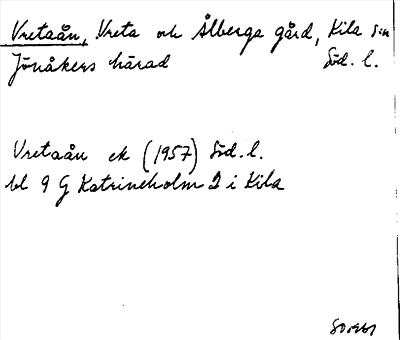 Vretaån, Vreta och Ålberga gård, Kila sn
Jönåkers härad Söd. l.
Vretaån ek (1957) Söd. l.
bl 9 G Katrineholm 2 i Kila